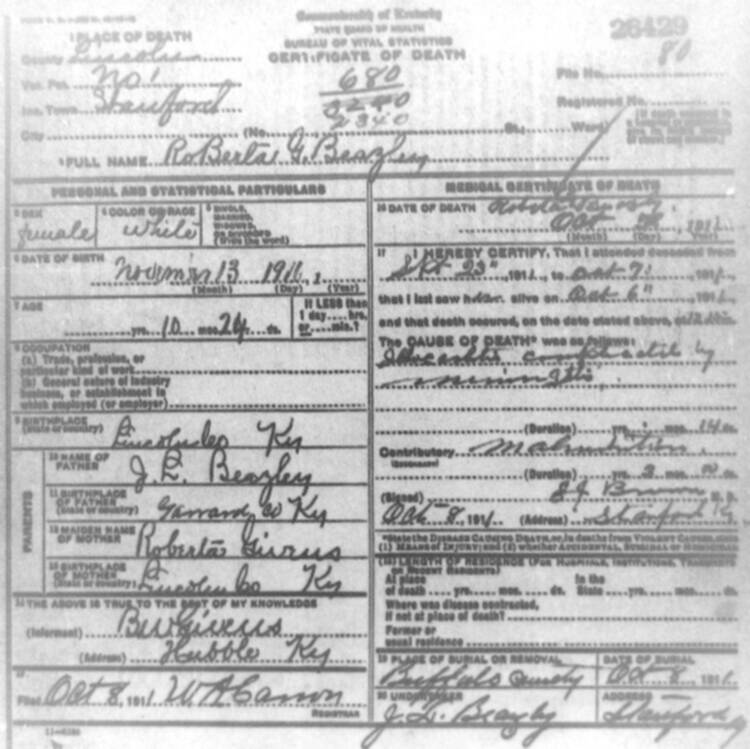 Commonwealth of Kentucky
STATE BOARD OF HEALTH
BUREAU OF VITAL STATISTICS
CERTIFICATE OF DEATH
26429
80
1 PLACE OF DEATH
County Lincoln
Vot. Pct. No 1
Inc. Town Stanford
City (No. St.; Ward)
680
File No.
Registered No.
2 FULL NAME Roberta G. Beazley
PERSONAL AND STATISTICAL PARTICULARS
3 SEX
female
4 COLOR OR RACE
White
5 SINGLE,
MARRIED,
WIDOWED,
OR DIVORCED
(Write the word)
6 DATE OF BIRTH
November 13 1910, 1
(Month) (Day) (Year)
7 AGE
yrs. 10 mos. 24 ds.
If LESS than
1 day.... hrs.
or.... min.?
8 OCCUPATION
(a) Trade, profession, or
particular kind of work
(b) General nature of industry
business, or establishment in
which employed (or employer)
9 BIRTHPLACE
(State or country) Lincoln Co Ky
PARENTS
10 NAME OF
FATHER J. L. Beazley
11 BIRTHPLACE
OF FATHER
(State or country) Garrard Co Ky
12 MAIDEN NAME
OF MOTHER Roberta Givens
13 BIRTHPLACE
OF MOTHER
(State or country) Lincoln Co Ky
14 THE ABOVE IS TRUE TO THE BEST OF MY KNOWLEDGE
(Informant) B W Givens
(Address) Hubble Ky
15
Filed Oct 8, 1911 W A Carson
REGISTRAR
MEDICAL CERTIFICATE OF DEATH
16 DATE OF DEATH
Oct 1911
(Month) (Day) (Year)
17 I HEREBY CERTIFY, That I attended deceased from
Sept 23", 1911, to Oct 7, 1911,
that I last saw her alive on Oct 6", 1911,
and that death occured, on the date stated above, at
The CAUSE OF DEATH* was as follows:
complicated by
(Duration) yrs. mos. 14 ds.
Contributory Malnutrition
(SECONDARY)
(Duration) yrs. 3 mos. ds.
(Signed) J G M. D.
Oct 8, 1911 (Address) Stanford Ky
*State the DISEASE CAUSING DEATH, or, in deaths from VIOLENT CAUSES, state
(1) MEANS OF INJURY; and (2) whether ACCIDENTAL, SUICIDAL OR HOMICIDAL
(18) LENGTH OF RESIDENCE (FOR HOSPITALS, INSTITUTIONS, TRANSIENTS
OR RECENT RESIDENTS)
At place
of death.... yrs.... mos.... ds.
In the
State.... yrs.... mos.... ds.
Where was disease contracted,
if not at place of death?
Former or
usual residence
19 PLACE OF BURIAL OR REMOVAL
Buffalo Cemetery
DATE OF BURIAL
Oct 8, 1911
20 UNDERTAKER
J. L. Beazley
ADDRESS
Stanford Ky